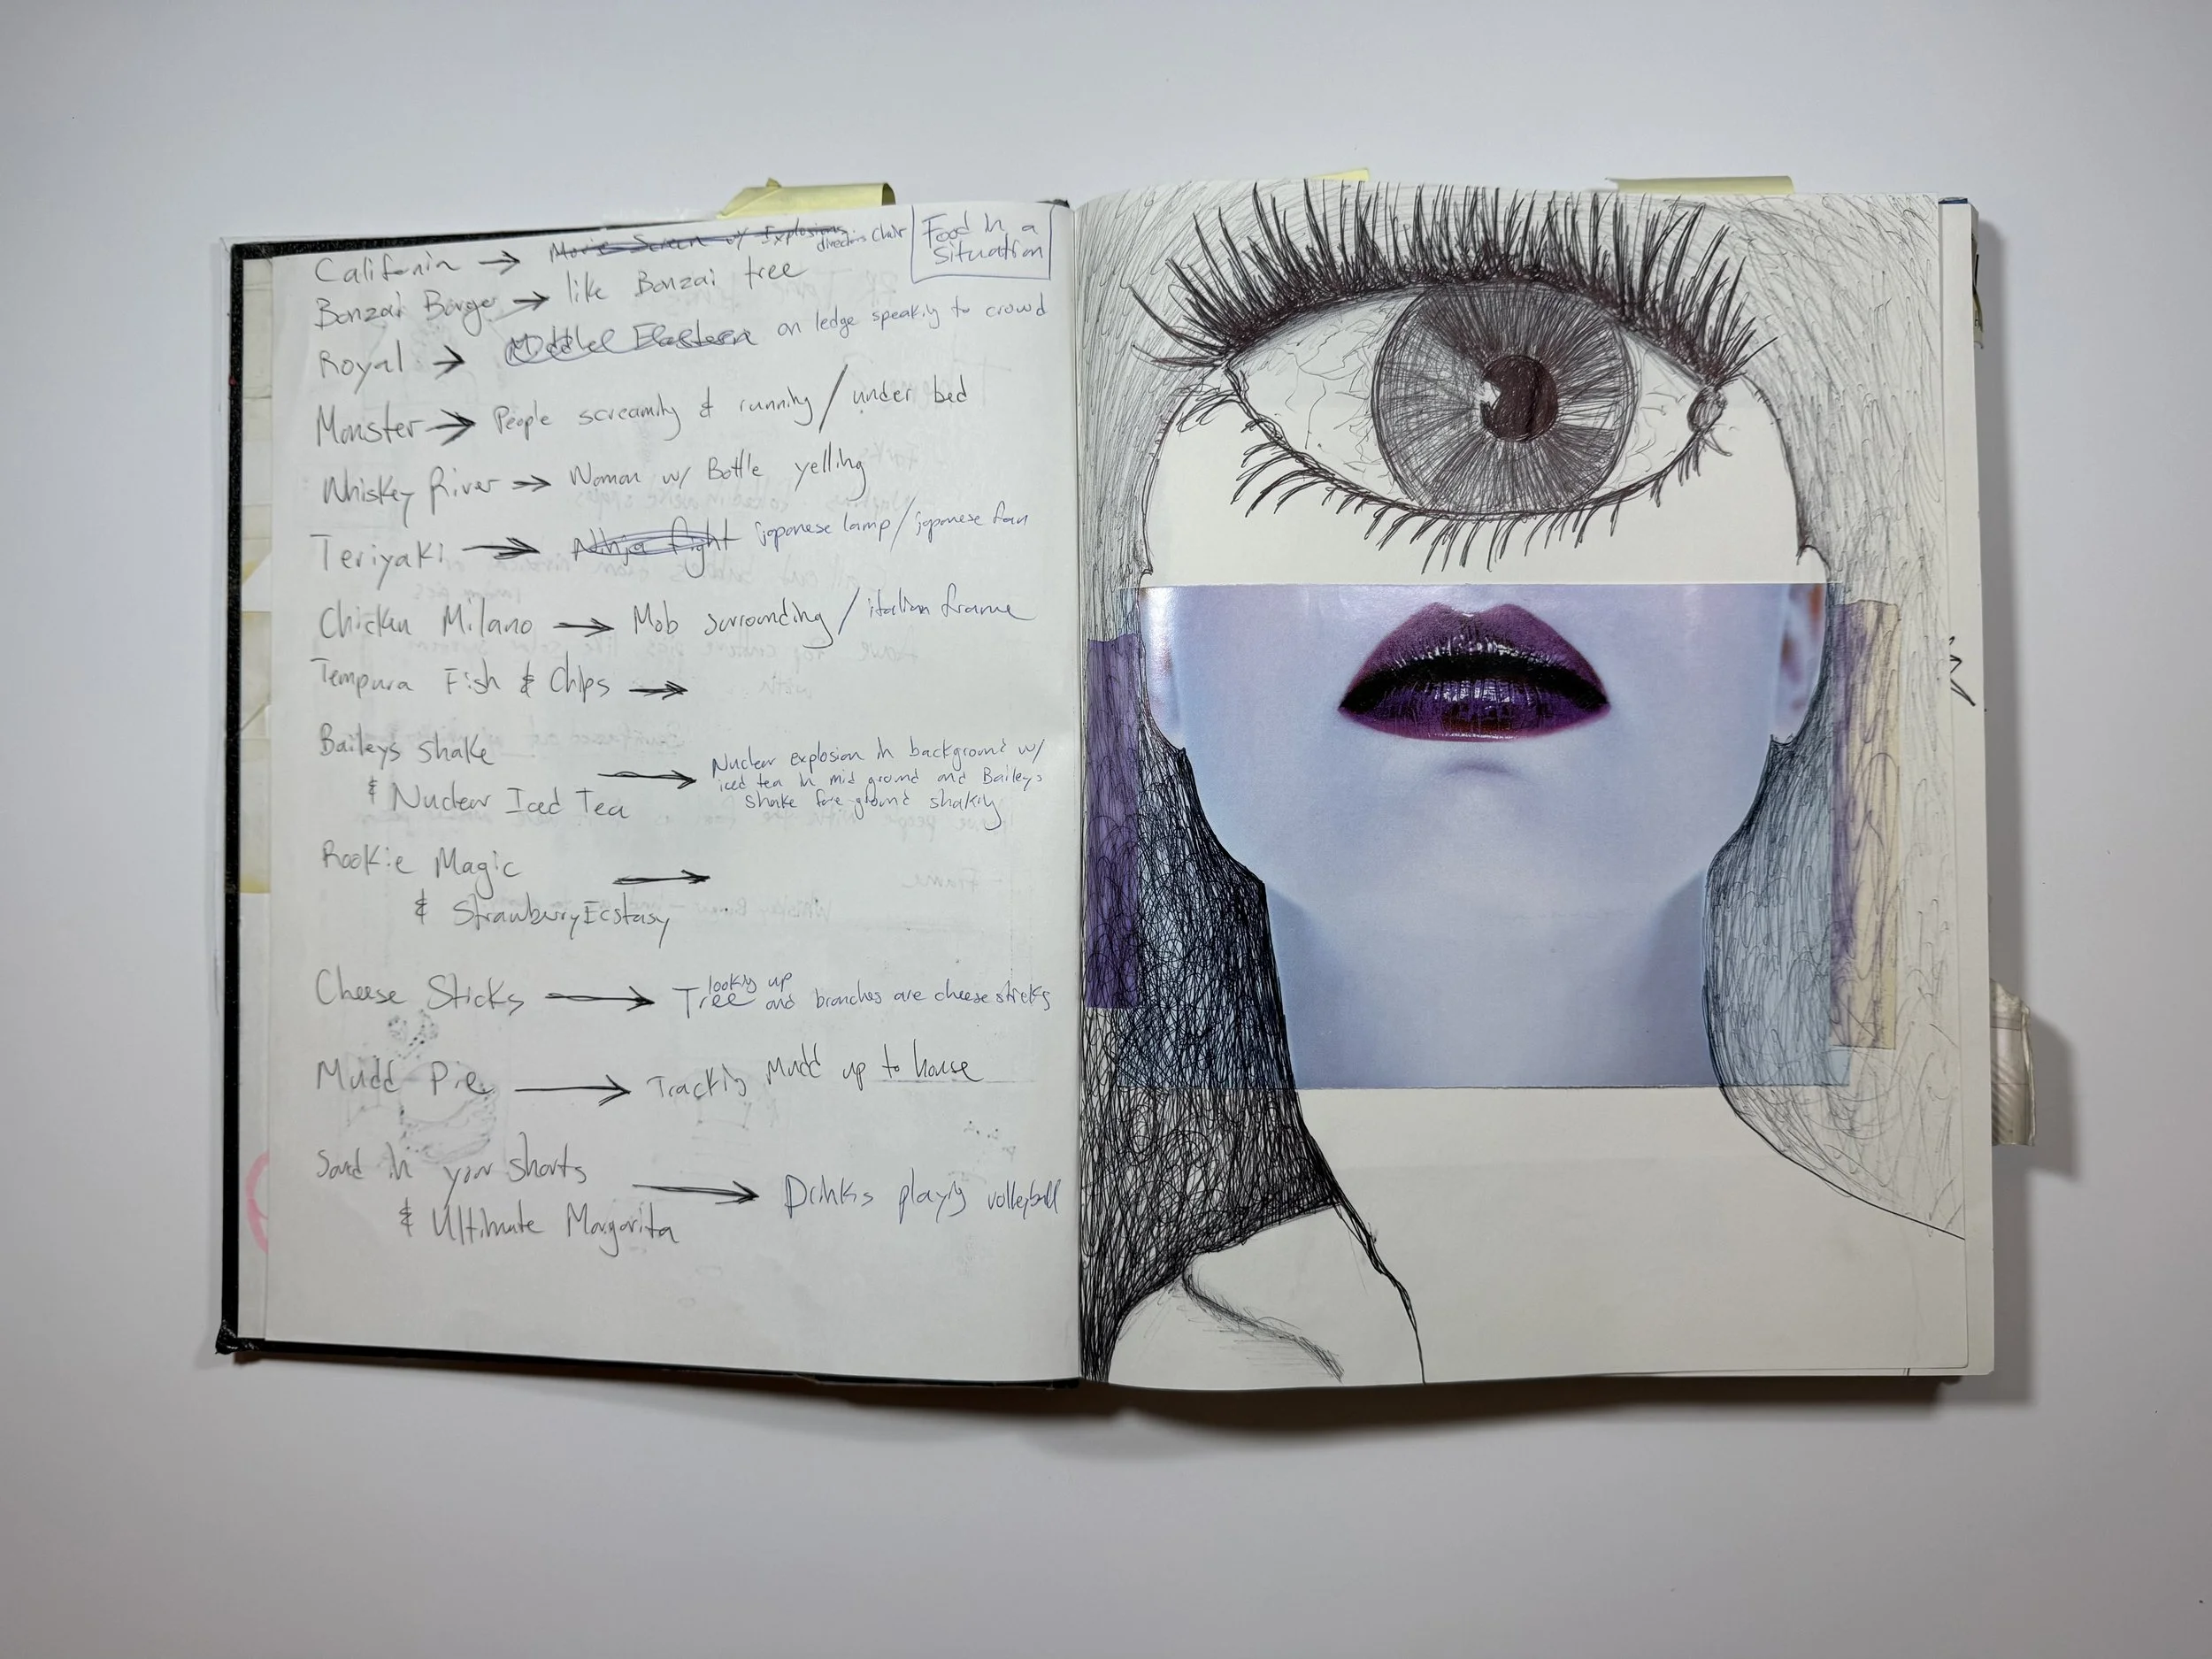 Food in a
Situation
Califonia → Movie Screen w/ Explosions directors Chair
Bonzai Burger → like Bonzai tree
Royal → Middle Eastern on ledge speaking to crowd
Monster → People screaming & running / under bed
Whiskey River → Woman w/ Bottle yelling
Teriyaki → Ninja fight japonese lamp / japonese fan
Chicken Milano → Mob surrounding / italian frame
Tempura Fish & Chips →
Baileys shake
& Nuclear Iced Tea →
Nuclear explosion in background w/
iced tea in mid ground and Baileys
shake fore ground shaking
Rookie Magic
& Strawburry Ecstasy →
Cheese Sticks → Tree looking up and branches are cheese sticks
Mudd Pie → Tracking Mudd up to house
Sand in your shorts
& Ultimate Margarita → Drinks playing volleyball